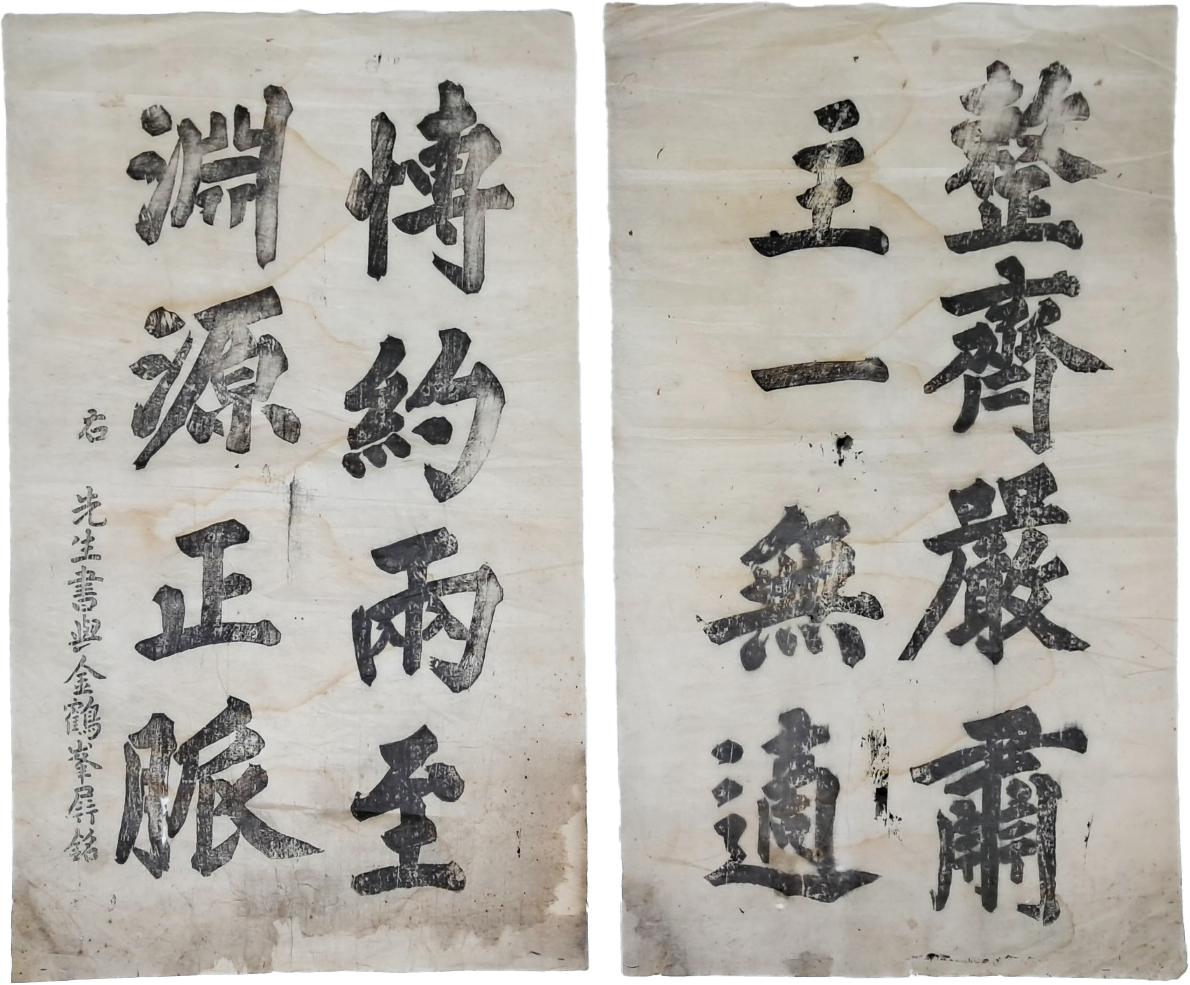 整齊嚴肅
主一無適
博約兩至
淵源正脈
右
先生書與金鶴峯屛銘